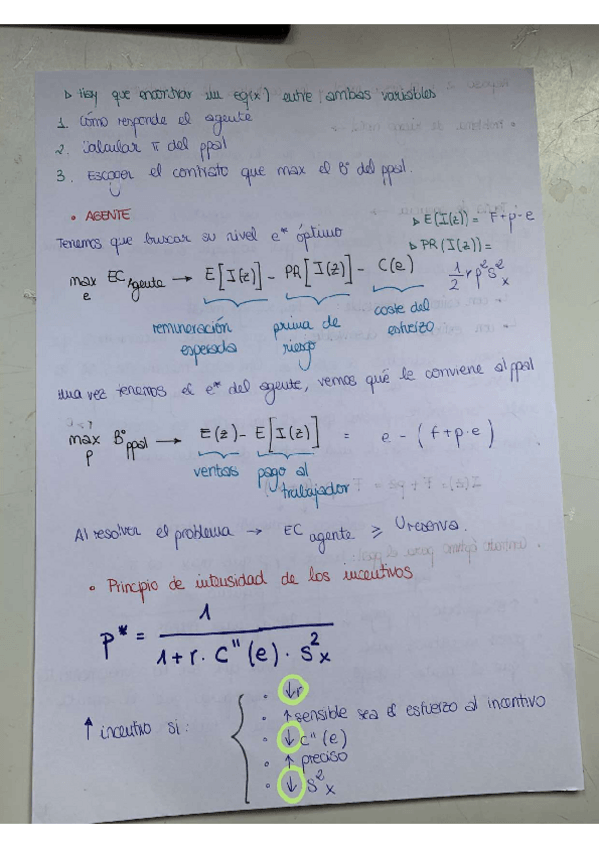 ▷ Hay que encontrar un eq(x) entre ambas variables
1. Cómo responde el agente
2. Calcular π del ppal
3. Escoger el contrato que max el Bº del ppal.
• AGENTE
Tenemos que buscar su nivel e* óptimo
▷ E(I(z)) = F+p·e
▷ PR(I(z)) =
1/2 r p² s²x
max e EC agente → E[I(z)] - PR[I(z)] - C(e)
remuneración esperada
prima de riesgo
coste del esfuerzo
Una vez tenemos el e* del agente, vemos qué le conviene al ppal
max p Bº ppal → E(z) - E[I(z)] = e - (f+p·e)
ventas
pago al trabajador
Al resolver el problema → EC agente ≥ Ureserva.
• Principio de intensidad de los incentivos
p* = 1 / 1+r·C''(e)·s²x
↑ incentivo si:
• ↓r
• ↑ sensible sea el esfuerzo al incentivo
• ↓ C''(e)
• ↑ preciso
• ↓ s²x